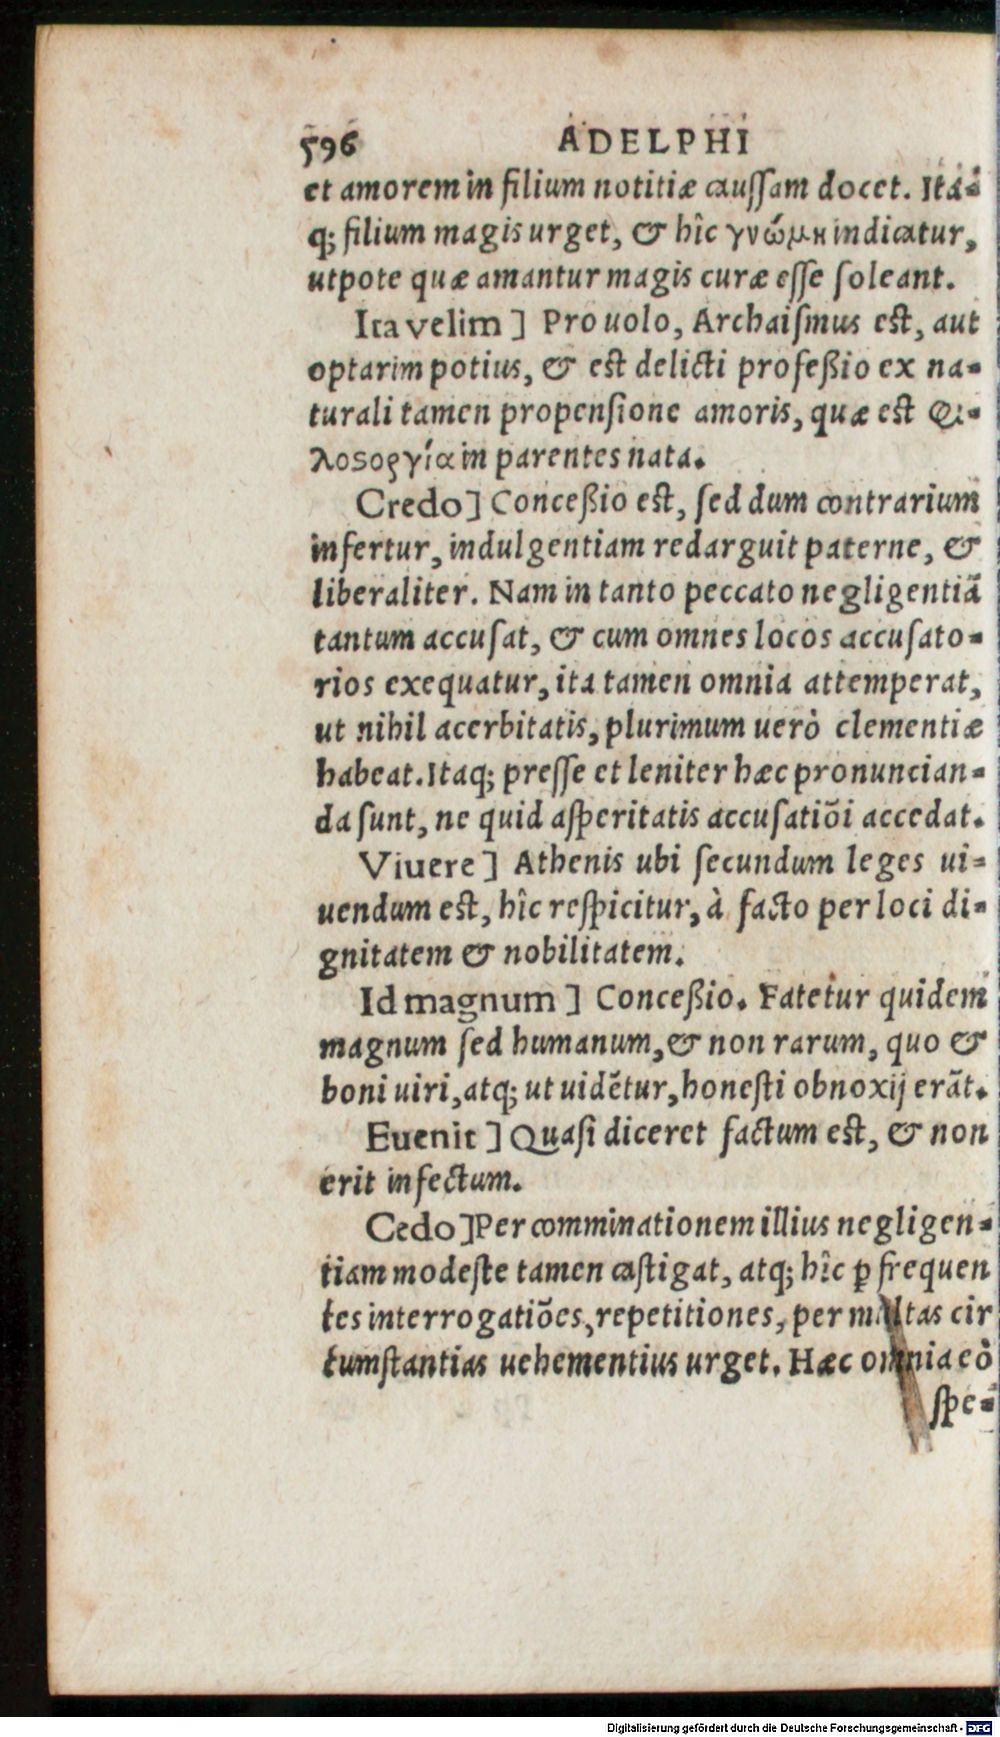 596 ADELPHI
et amorem in filium notitiæ cauſſam docet. Ita-
q; filium magis urget, & hîc γνώμη indicatur,
utpote quæ amantur magis curæ eſſe ſoleant.
Ita velim ] Pro uolo, Archaiſmus est, aut
optarim potius, & est delicti profeßio ex na-
turali tamen propenſione amoris, quæ est φι-
λοϛοργία in parentes nata.
Credo ] Conceßio est, ſed dum contrarium
infertur, indulgentiam redarguit paterne, &
liberaliter. Nam in tanto peccato negligentiã
tantum accuſat, & cum omnes locos accuſato-
rios exequatur, ita tamen omnia attemperat,
ut nihil acerbitatis, plurimum uerò clementiæ
habeat. Itaq; preſſe et leniter hæc pronuncian-
da ſunt, ne quid aſperitatis accuſatiõi accedat.
Viuere ] Athenis ubi ſecundum leges ui-
uendum est, hîc reſpicitur, à facto per loci di-
gnitatem & nobilitatem.
Id magnum ] Conceßio. Fatetur quidem
magnum ſed humanum, & non rarum, quo &
boni uiri, atq; ut uidẽtur, honeſti obnoxij erãt.
Euenit ] Quaſi diceret factum est, & non
erit infectum.
Cedo ] Per comminationem illius negligen-
tiam modeſte tamen caſtigat, atq; hîc ꝑ frequen
tes interrogatiões, repetitiones, per multas cir
cumſtantias uehementius urget. Hæc omnia eò
ſpe-
Digitalisierung gefördert durch die Deutsche Forschungsgemeinschaft - DFG